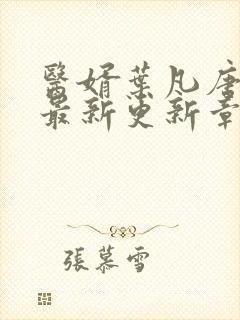 醫婿葉凡唐
最新更新章
張慕雪